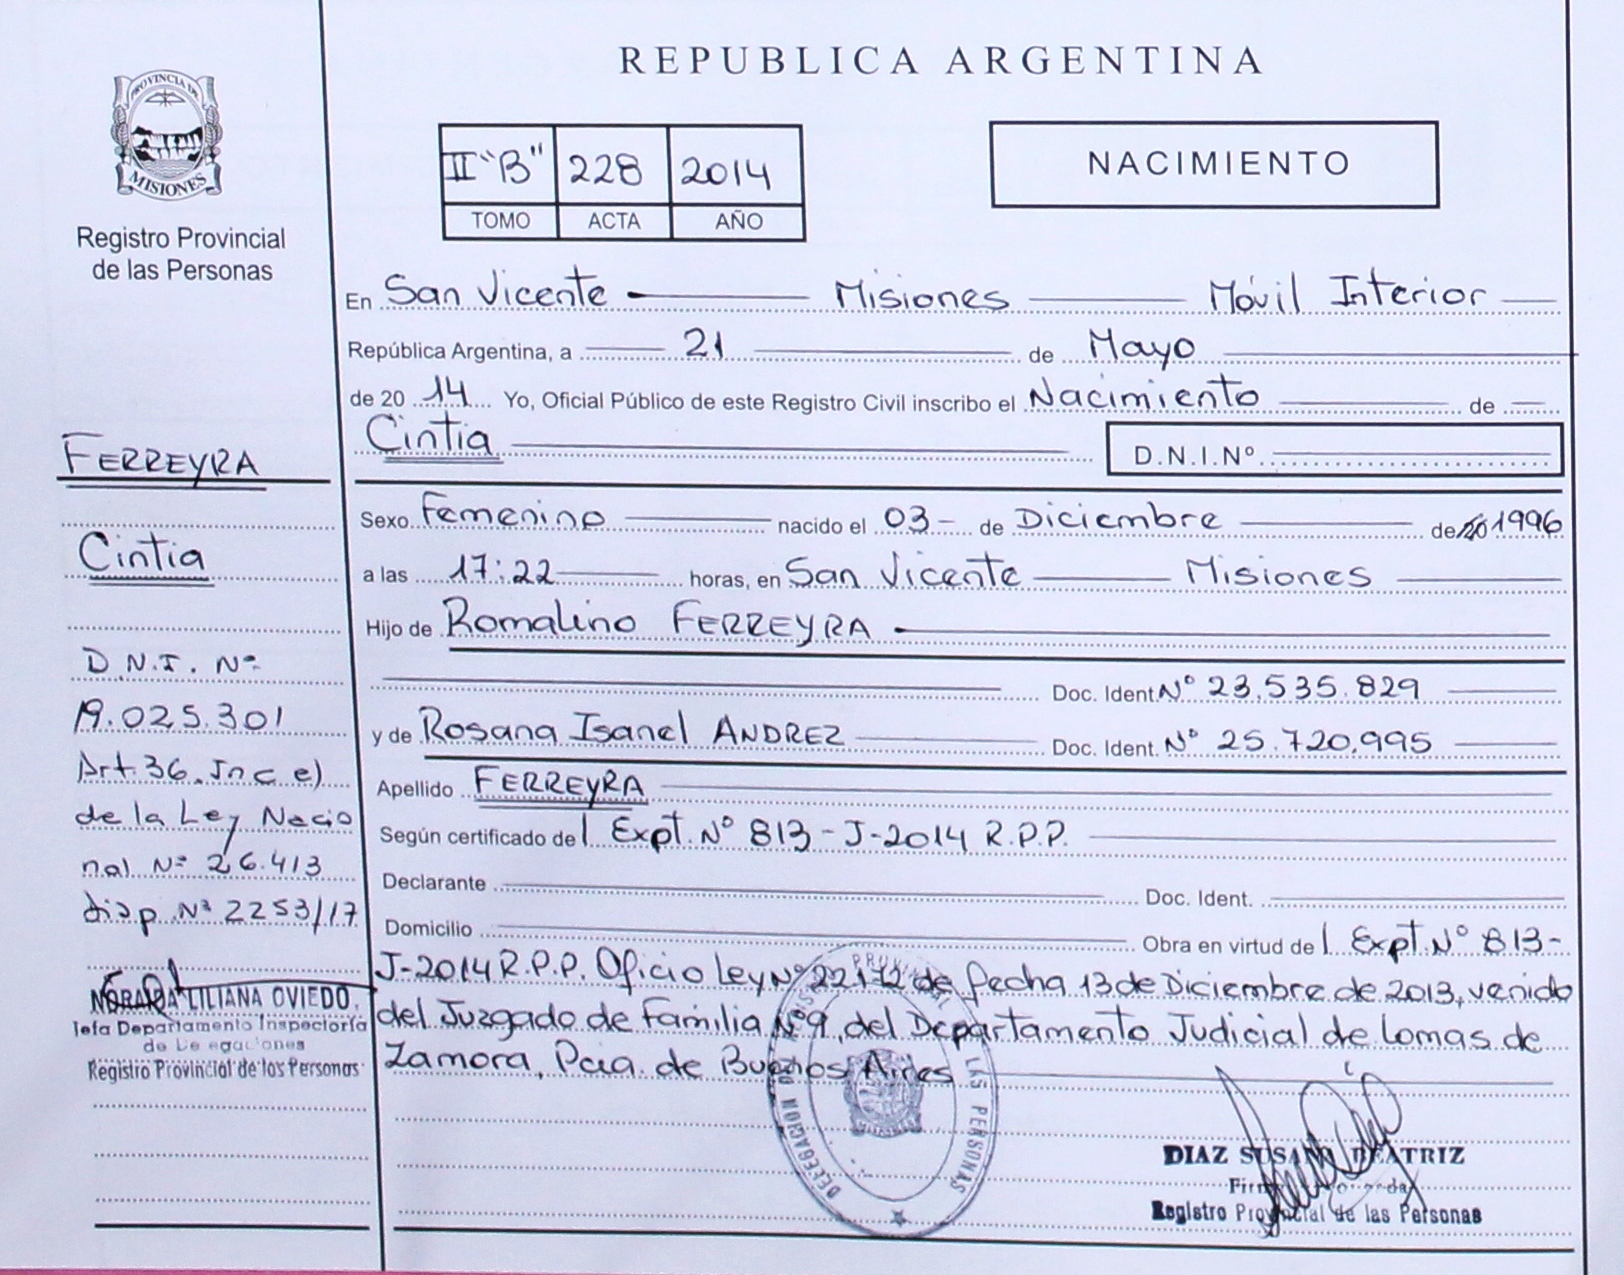 REPUBLICA ARGENTINA
PROVINCIA DE
MISIONES
Registro Provincial
de las Personas
II "B" 228 2014
TOMO ACTA AÑO
NACIMIENTO
En San Vicente Misiones Móvil Interior
República Argentina, a 21 de Mayo
de 20 14 Yo, Oficial Público de este Registro Civil inscribo el Nacimiento de
Cintia D.N.I.Nº
Sexo Femenino nacido el 03- de Diciembre de 1996
a las 17:22 horas, en San Vicente Misiones
Hijo de Romalino FERREYRA
Doc. Ident. Nº 23.535.829
y de Rosana Isanel ANDREZ Doc. Ident. Nº 25.720.995
Apellido FERREYRA
Según certificado de Expt. Nº 813-J-2014 R.P.P.
Declarante Doc. Ident.
Domicilio Obra en virtud de Expt. Nº 813-
J-2014 R.P.P. Oficio Ley Nº 22172 de fecha 13 de Diciembre de 2013, venido
del Juzgado de Familia Nº9, del Departamento Judicial de Lomas de
Zamora, Pcia. de Buenos Aires
FERREYRA
Cintia
D.N.I. Nº
19.025.301
Art. 36. Inc e)
de la Ley Nacio
nal Nº 26.413
disp Nº 2253/17
LILIANA OVIEDO
Jefa Departamento Inspectoría
de Delegaciones
Registro Provincial de las Personas
DELEGACION LAS PERSONAS
DIAZ SUSANA BEATRIZ
Registro Provincial de las Personas